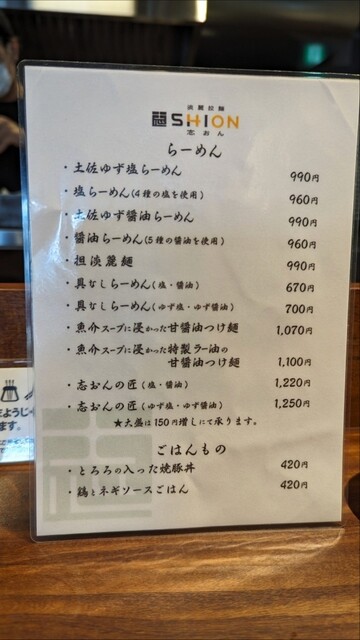 淡麗拉麺
SHION
志おん
らーめん
・土佐ゆず塩らーめん 990円
・塩らーめん(4種の塩を使用) 960円
・土佐ゆず醤油らーめん 990円
・醤油らーめん(5種の醤油を使用) 960円
・担淡麗麺 990円
・具なしらーめん(塩・醤油) 670円
・具なしらーめん(ゆず塩・ゆず醤油) 700円
・魚介スープに浸かった甘醤油つけ麺 1,070円
・魚介スープに浸かった特製ラー油の
甘醤油つけ麺 1,100円
・志おんの匠(塩・醤油) 1,220円
・志おんの匠(ゆず塩・ゆず醤油) 1,250円
★大盛は150円増しにて承ります。
ごはんもの
・とろろの入った焼豚丼 420円
・鶏とネギソースごはん 420円
ようじ
ます。